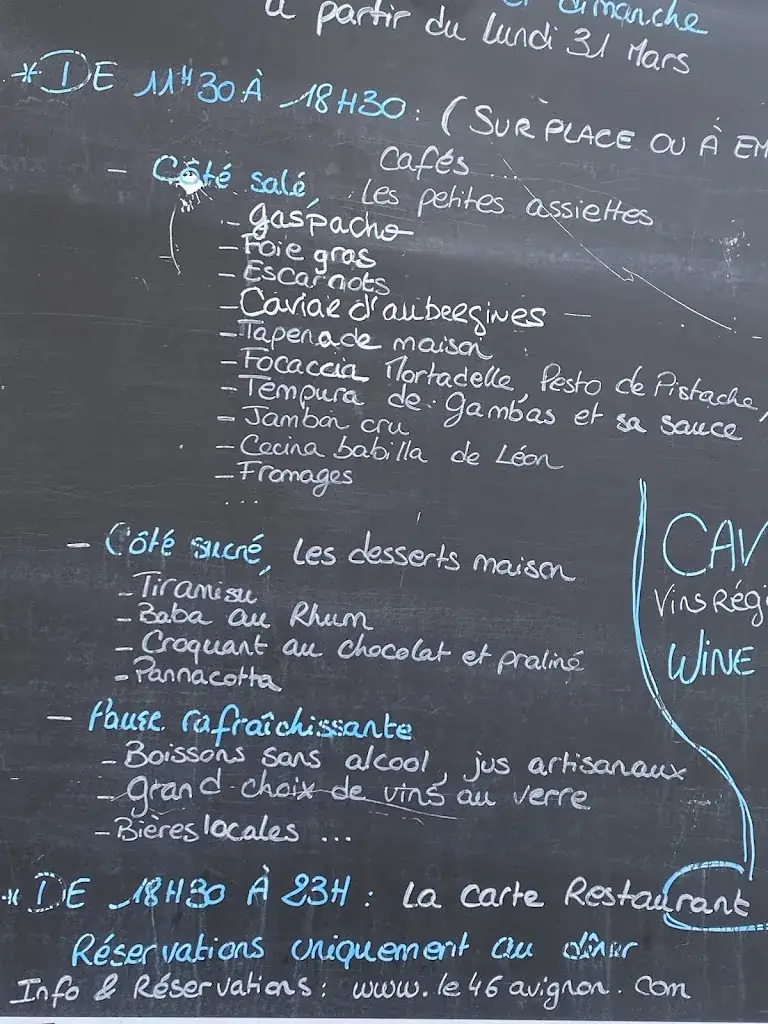 et dimanche
à partir du lundi 31 Mars
* DE 11H30 À 18H30 : (SUR PLACE OU À EM
Cafés ...
- Côté salé, les petites assiettes
- gaspacho
- Foie gras
- Escargots
- Caviar d'aubergines -
- Tapenade maison
- Focaccia Mortadelle, Pesto de Pistache,
- Tempura de gambas et sa sauce
- Jambon cru
- Cecina babilla de Léon
- Fromages
...
- Côté sucré, les desserts maison
- Tiramisu
- Baba au Rhum
- Croquant au chocolat et praliné
- Pannacotta
CAV
Vins Régi
WINE
- Pause rafraîchissante
- Boissons sans alcool, jus artisanaux
- Grand choix de vins au verre
- Bières locales ...
* DE 18H30 À 23H : La carte Restaurant
Réservations uniquement au dîner
Info & Réservations : www.le46avignon.com